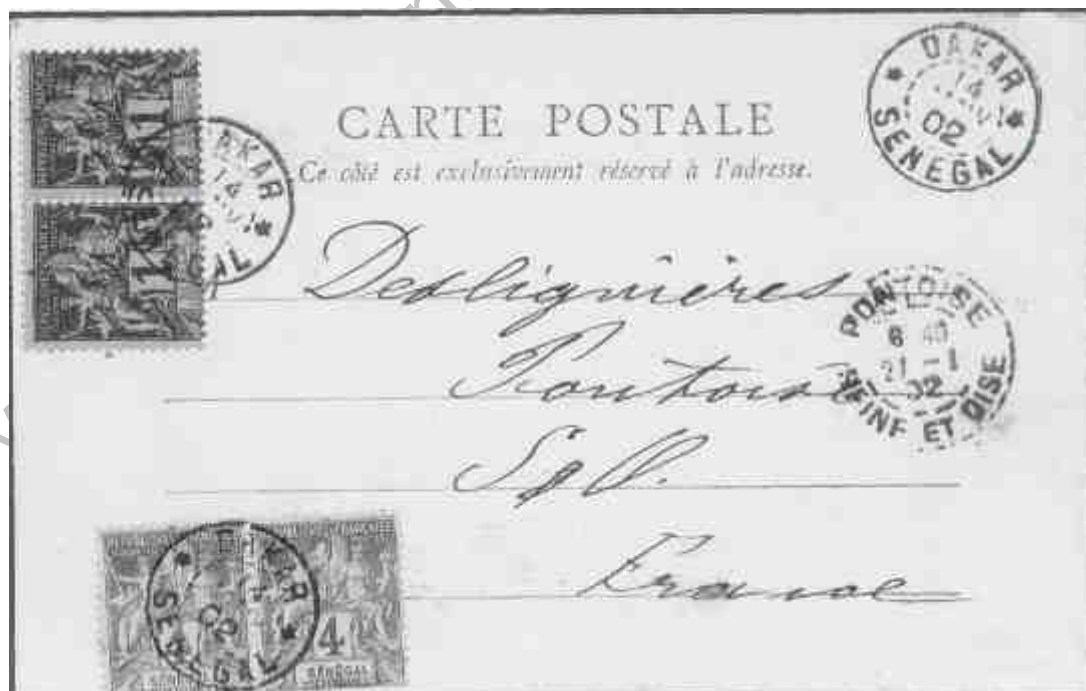 DAKAR
14
02
SENEGAL
CARTE POSTALE
Ce côté est exclusivement réservé à l'adresse.
1
AKAR
14
GAL
1
Deslignières
PONTOISE
6 40
21 - 1
02
SEINE ET OISE
Pontoise
S & O.
France
DAKAR
02
SENEGAL
4
SÉNÉGAL